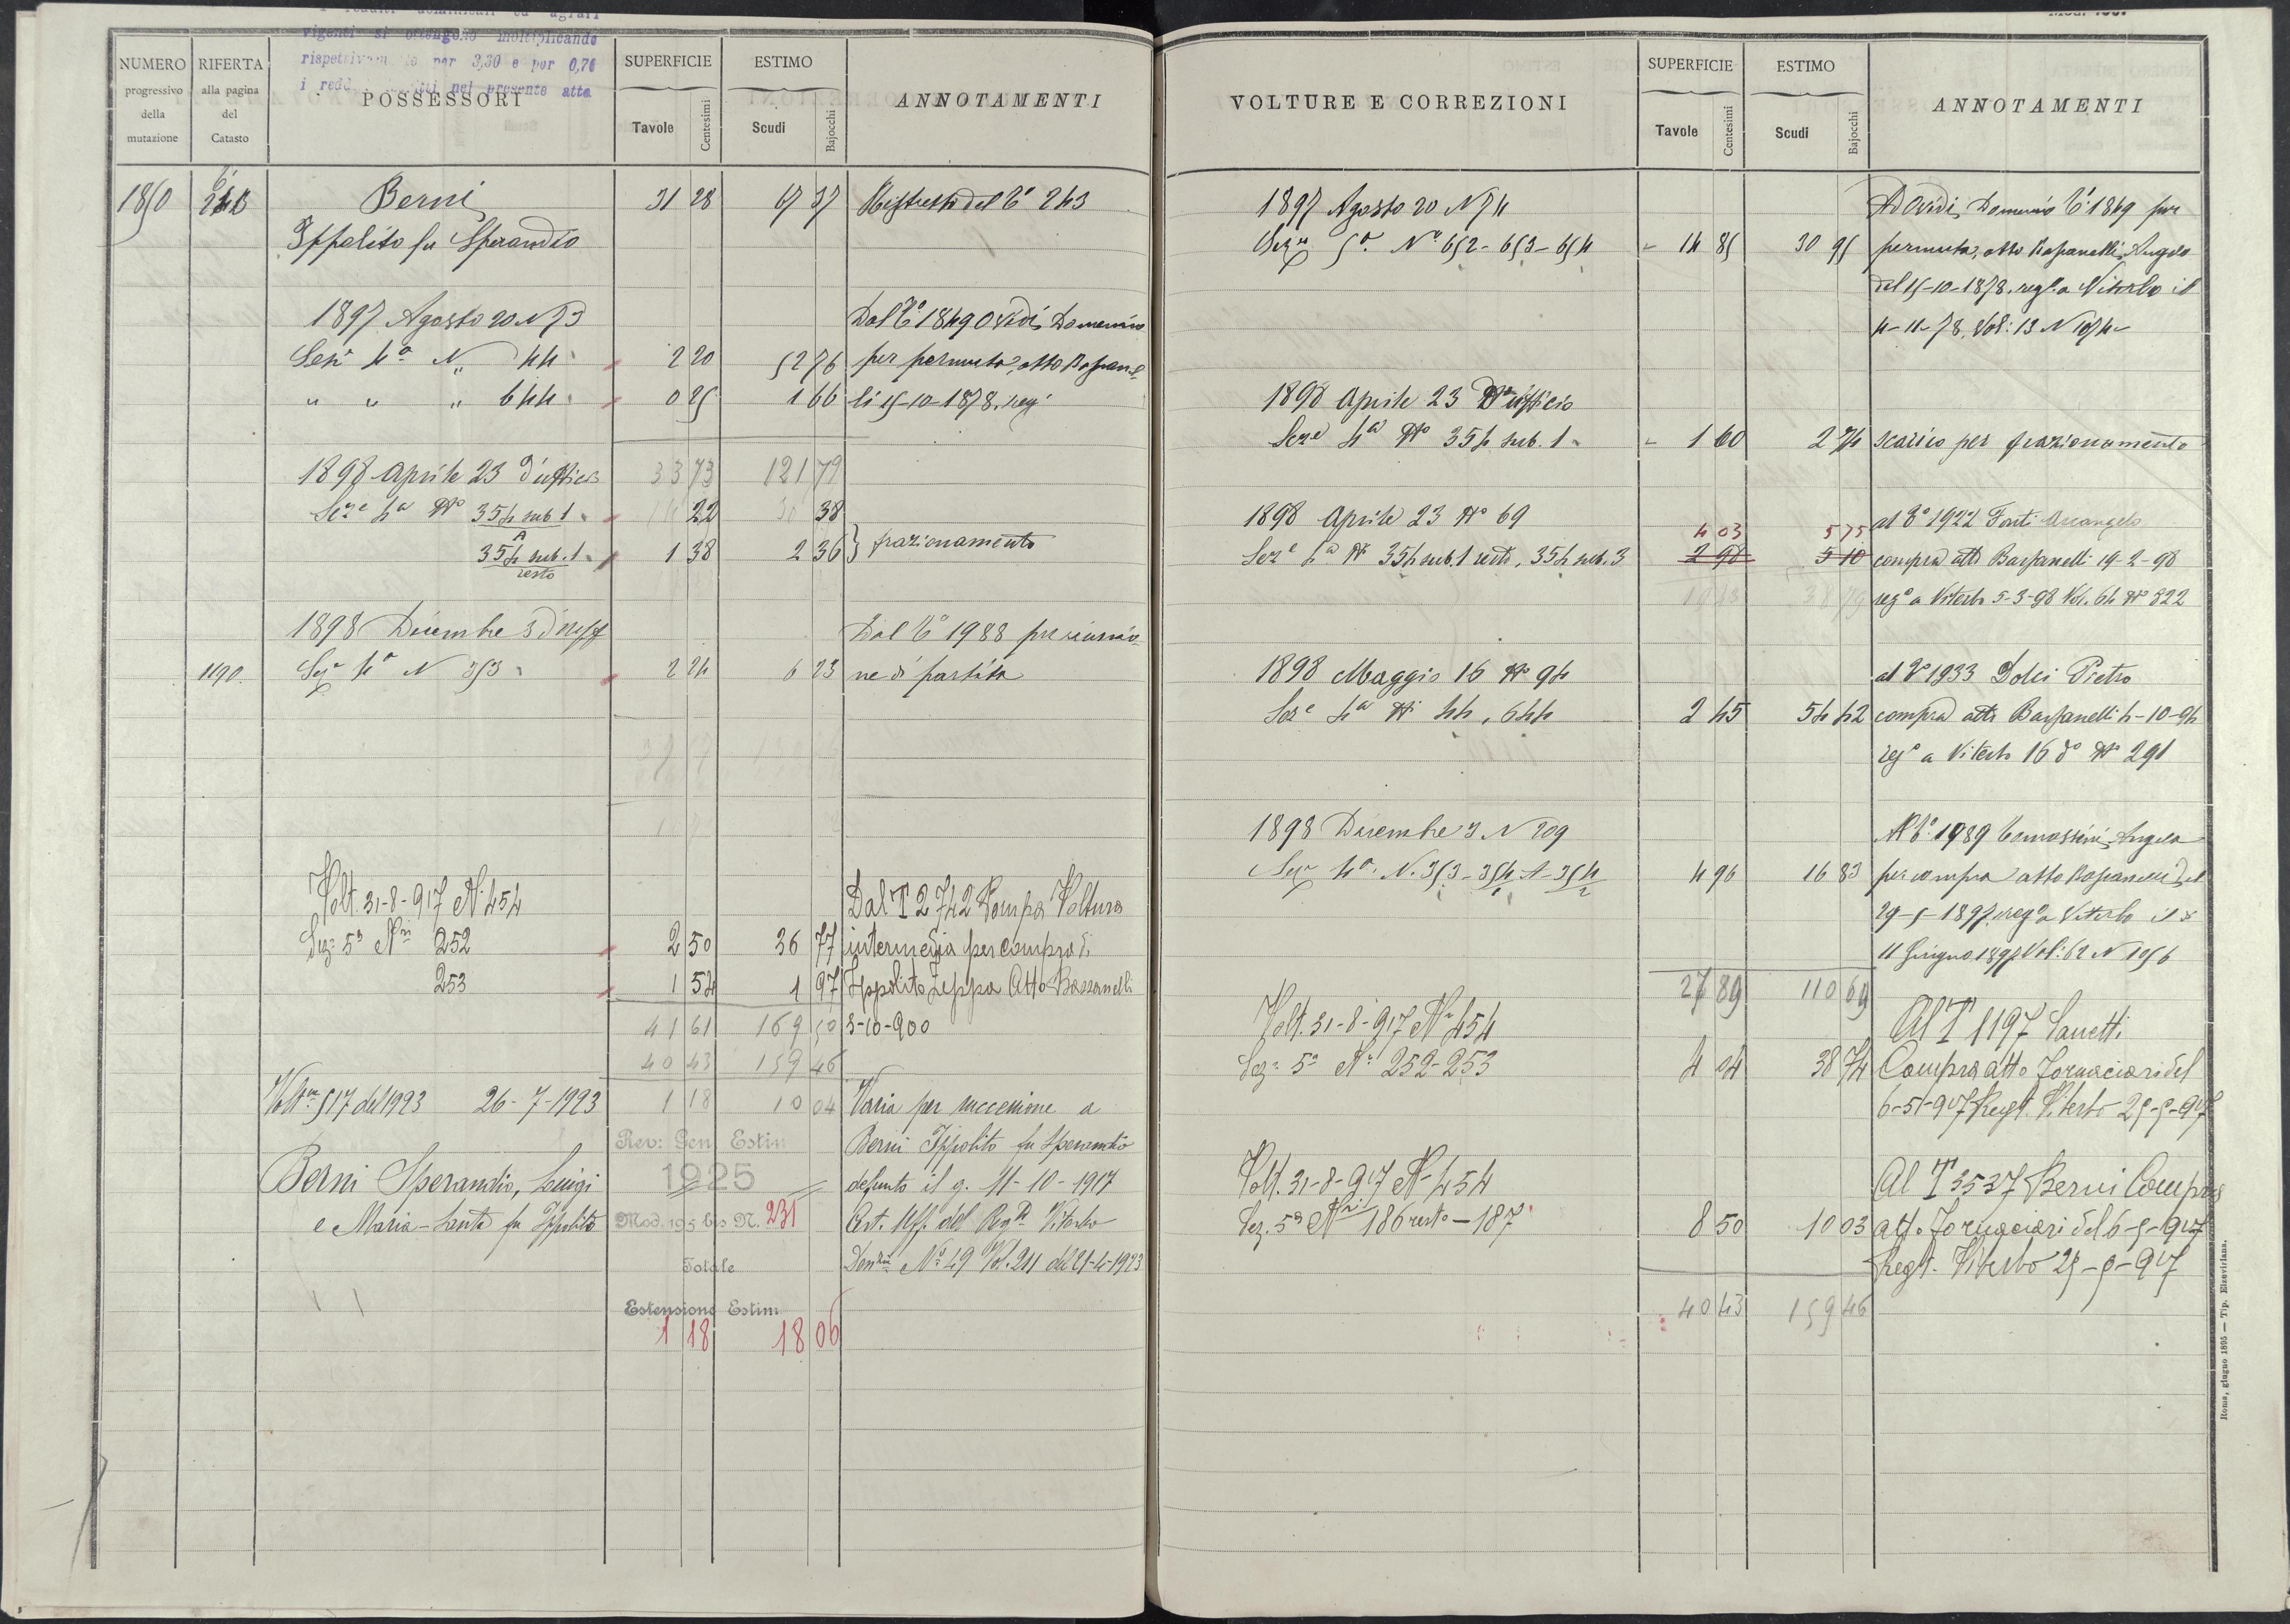 vigenti si ottengono moltiplicando
rispettivamente per 3,30 e per 0,76
i redd nel presente atto
NUMERO progressivo della mutazione
RIFERTA alla pagina del Catasto
POSSESSORI
SUPERFICIE
Tavole Centesimi
ESTIMO
Scudi Bajocchi
ANNOTAMENTI
1850 Berni 31 28 67 37 del To 243
Ippolito fu Sperandio
1897 Agosto 20 N 73 Dal To 1849 Ovidi Domenico
Sezn 4a N 44 2 20 52 76 per permuta, atto
" " " 644 0 25 1 66 li 15-10-1878. reg
33 73 121 79
1898 Aprile 23 d'ufficio
Seze 4a No 354 sub 1 22 38
A
354 sub. 1 1 38 2 36 } frazionamento
resto
1898 Dicembre 3 d'uff Dal To 1988 per riunio
1190. Sezn 4a N 353 2 24 6 23 ne di partita
Volt. 31-8-917 N. 454 Dal T 2742 Pompa Voltura
Sez. 5a Ni 252 2 50 36 77 intermedia per compra di
253 1 54 1 97 Ippolito Zeppa Atto Bassanelli
41 61 169 50 3-10-900
40 43 159 46
Voltra 517 del 1923 26-7-1923 1 18 10 04 Varia per successione a
Rev: Gen Estim
Berni Ippolito fu Sperandio
Berni Sperandio, Luigi 1925 defunto il g. 11-10-1917
e Maria-Santa fu Ippolito Mod. 195 bis N. 231 Cert. Uff. del Regro Viterbo
Totale Denzia No 49 Vol. 211 del 21-4-1923
Estensione Estim
1 18 18 06
VOLTURE E CORREZIONI
SUPERFICIE
Tavole Centesimi
ESTIMO
Scudi Bajocchi
ANNOTAMENTI
1897 Agosto 20 N 74 Ad Ovidi Domenico To 1849 per
Sezn 5a No 652-653-654 14 85 30 95 permuta, atto Angelo
del 15-10-1878, rega a Viterbo il
4-11-78, Vol: 13 N
1898 Aprile 23 D'ufficio
Seze 4a No 354 sub. 1 1 60 2 74 scarico per frazionamento
1898 Aprile 23 No 69 4 03 5 75 al To 1922 Fonti Arcangelo
Seze 4a No 354 sub. 1 resto, 354 sub. 3 2 98 5 10 compra atto Bassanelli 19-2-98
rego a Viterbo 5-3-98 Vol. 64 No 822
1898 Maggio 16 No 94 al To 1933 Dolci Pietro
Seze 4a Ni 44, 644 2 45 54 42 compra atto Bassanelli 4-10-94
rego a Viterbo 16 do No 291
1898 Dicembre 3 N 209 Al To 1989 Angelo
Sezn 4a. N. 353-354 A-354 4 96 16 83 per compra atto del
29-5-1897, rega Viterbo il
11 Giugno 1897 Vol: 62 N 1056
27 89 110 69
Volt. 31-8-917 No 454 Al T 1197
Sez. 5a Ni 252-253 4 04 38 74 Compra atto Fornaciari del
6-5-917 Regt. Viterbo 25-5-917
Volt. 31-8-917 N 454 Al T 3537 Berni Compra
Sez. 5a Ni 186 resto-187 8 50 10 03 atto Fornaciari del 6-5-917
Regt. Viterbo 25-5-917
40 43 159 46
Roma, giugno 1895 — Tip. Elzeviriana.